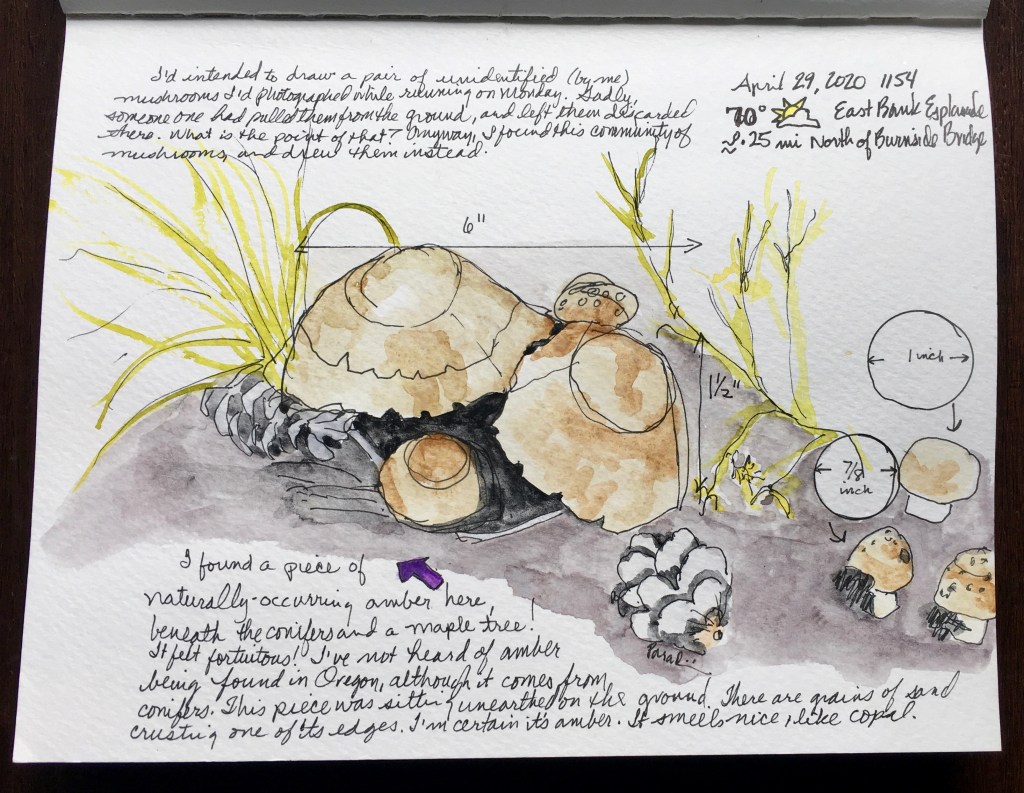 I'd intended to draw a pair of unidentified (by me)
mushrooms I'd photographed while running on Monday. Sadly,
someone one had pulled them from the ground, and left them discarded
there. What is the point of that? Anyway, I found this community of
mushrooms, and drew them instead.
April 29, 2020 1154
70° East Bank Esplanade
≈.25 mi North of Burnside Bridge
6"
1 inch
1½"
7/8
inch
I found a piece of
naturally-occurring amber here,
beneath the conifers and a maple tree!
It felt fortuitous! I've not heard of amber
being found in Oregon, although it comes from
conifers. This piece was sitting unearthed on the ground. There are grains of sand
crusting one of its edges. I'm certain it's amber. It smells nice, like copal.